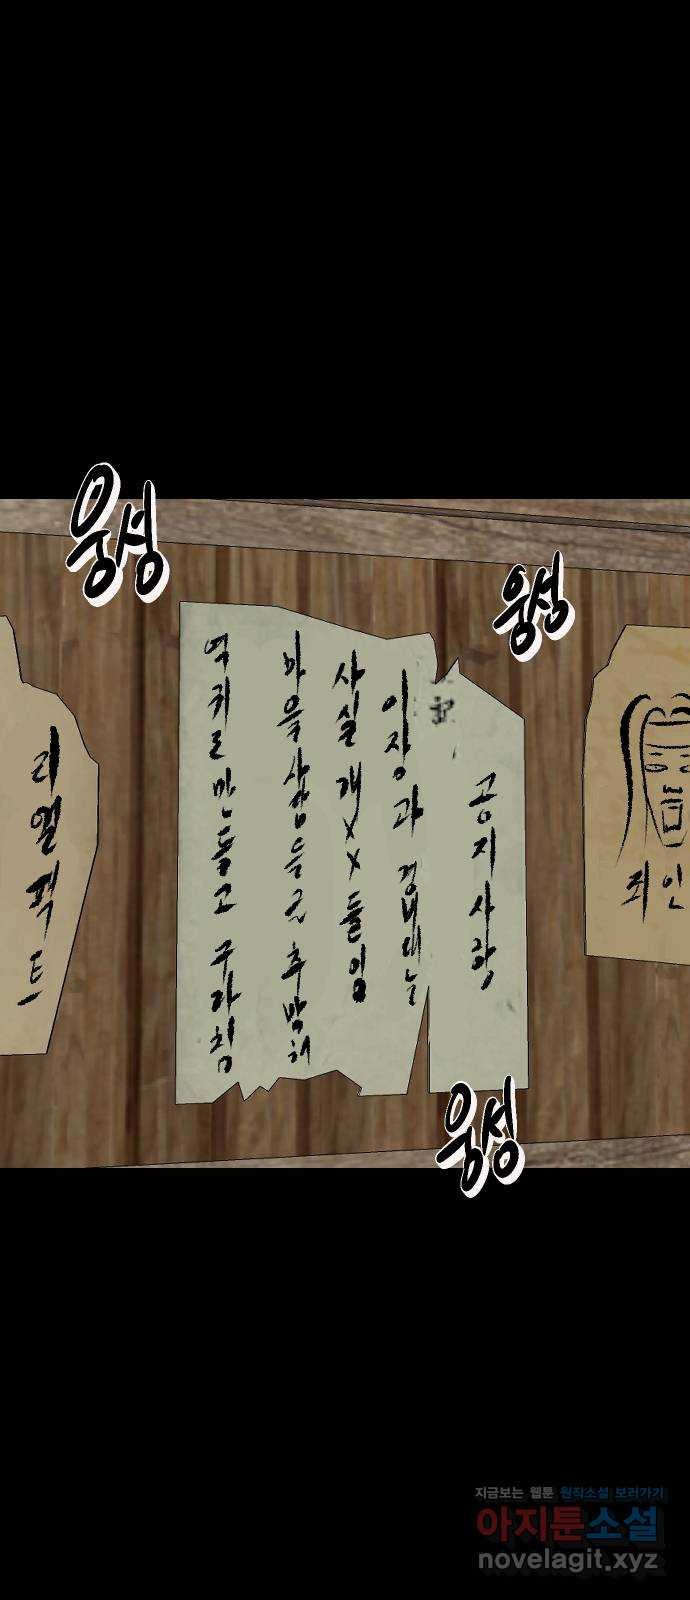 웅성
웅성
공지사항
이장과 경비대는
사실 개XX들임
마을사람들은 추방해
역귀로 만들고 구라침
리얼팩트
죄인
웅성
지금보는 웹툰 원작소설 보러가기
아지툰소설
novelagit.xyz